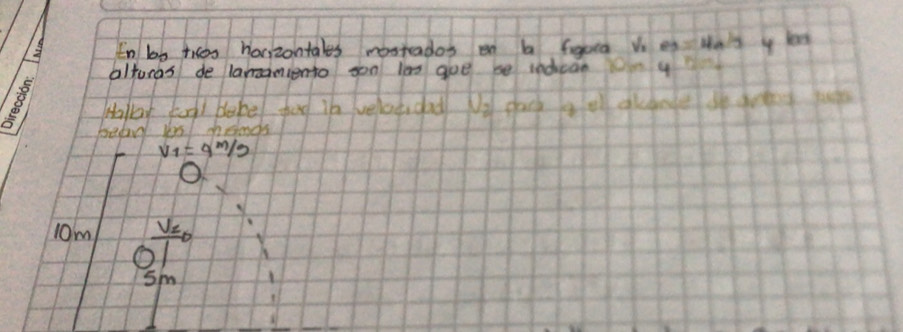 En los tiros horizontales mostrados en la figura V1 es = 4m/s y las
alturas de lanzamiento son las que se indican 10m y 5m.
Hallar cual debe ser la velocidad V2 para q el alcance de
sean los mismos
V1 = 9m/s
10m
V2
5m
Dirección: